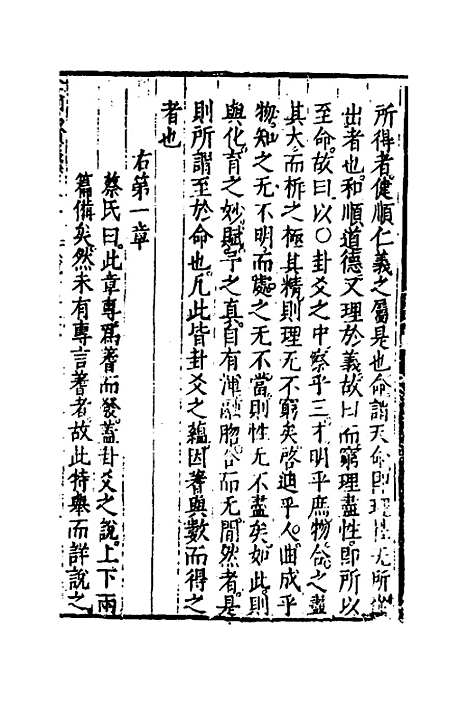 所得者健順仁義之屬是也命謂天命即理性无所
出者也和順道德又理於義故曰而窮理盡性即所以
至命故曰以〇卦爻之中察乎三才明乎庶物合之盡
其大而析之極其精則理无不窮矣啓迪乎人曲成乎
物知之无不明而處之无不當則性无不盡矣如此則
與化育之妙賦予之真自有渾融脗合而无間然者是
則所謂至於命也凡此皆卦爻之蘊因蓍與數而得之
者也
右第一章
蔡氏曰此章專爲蓍而發蓋卦爻之說上下兩
篇備矣然未有專言蓍者故此特舉而詳說之